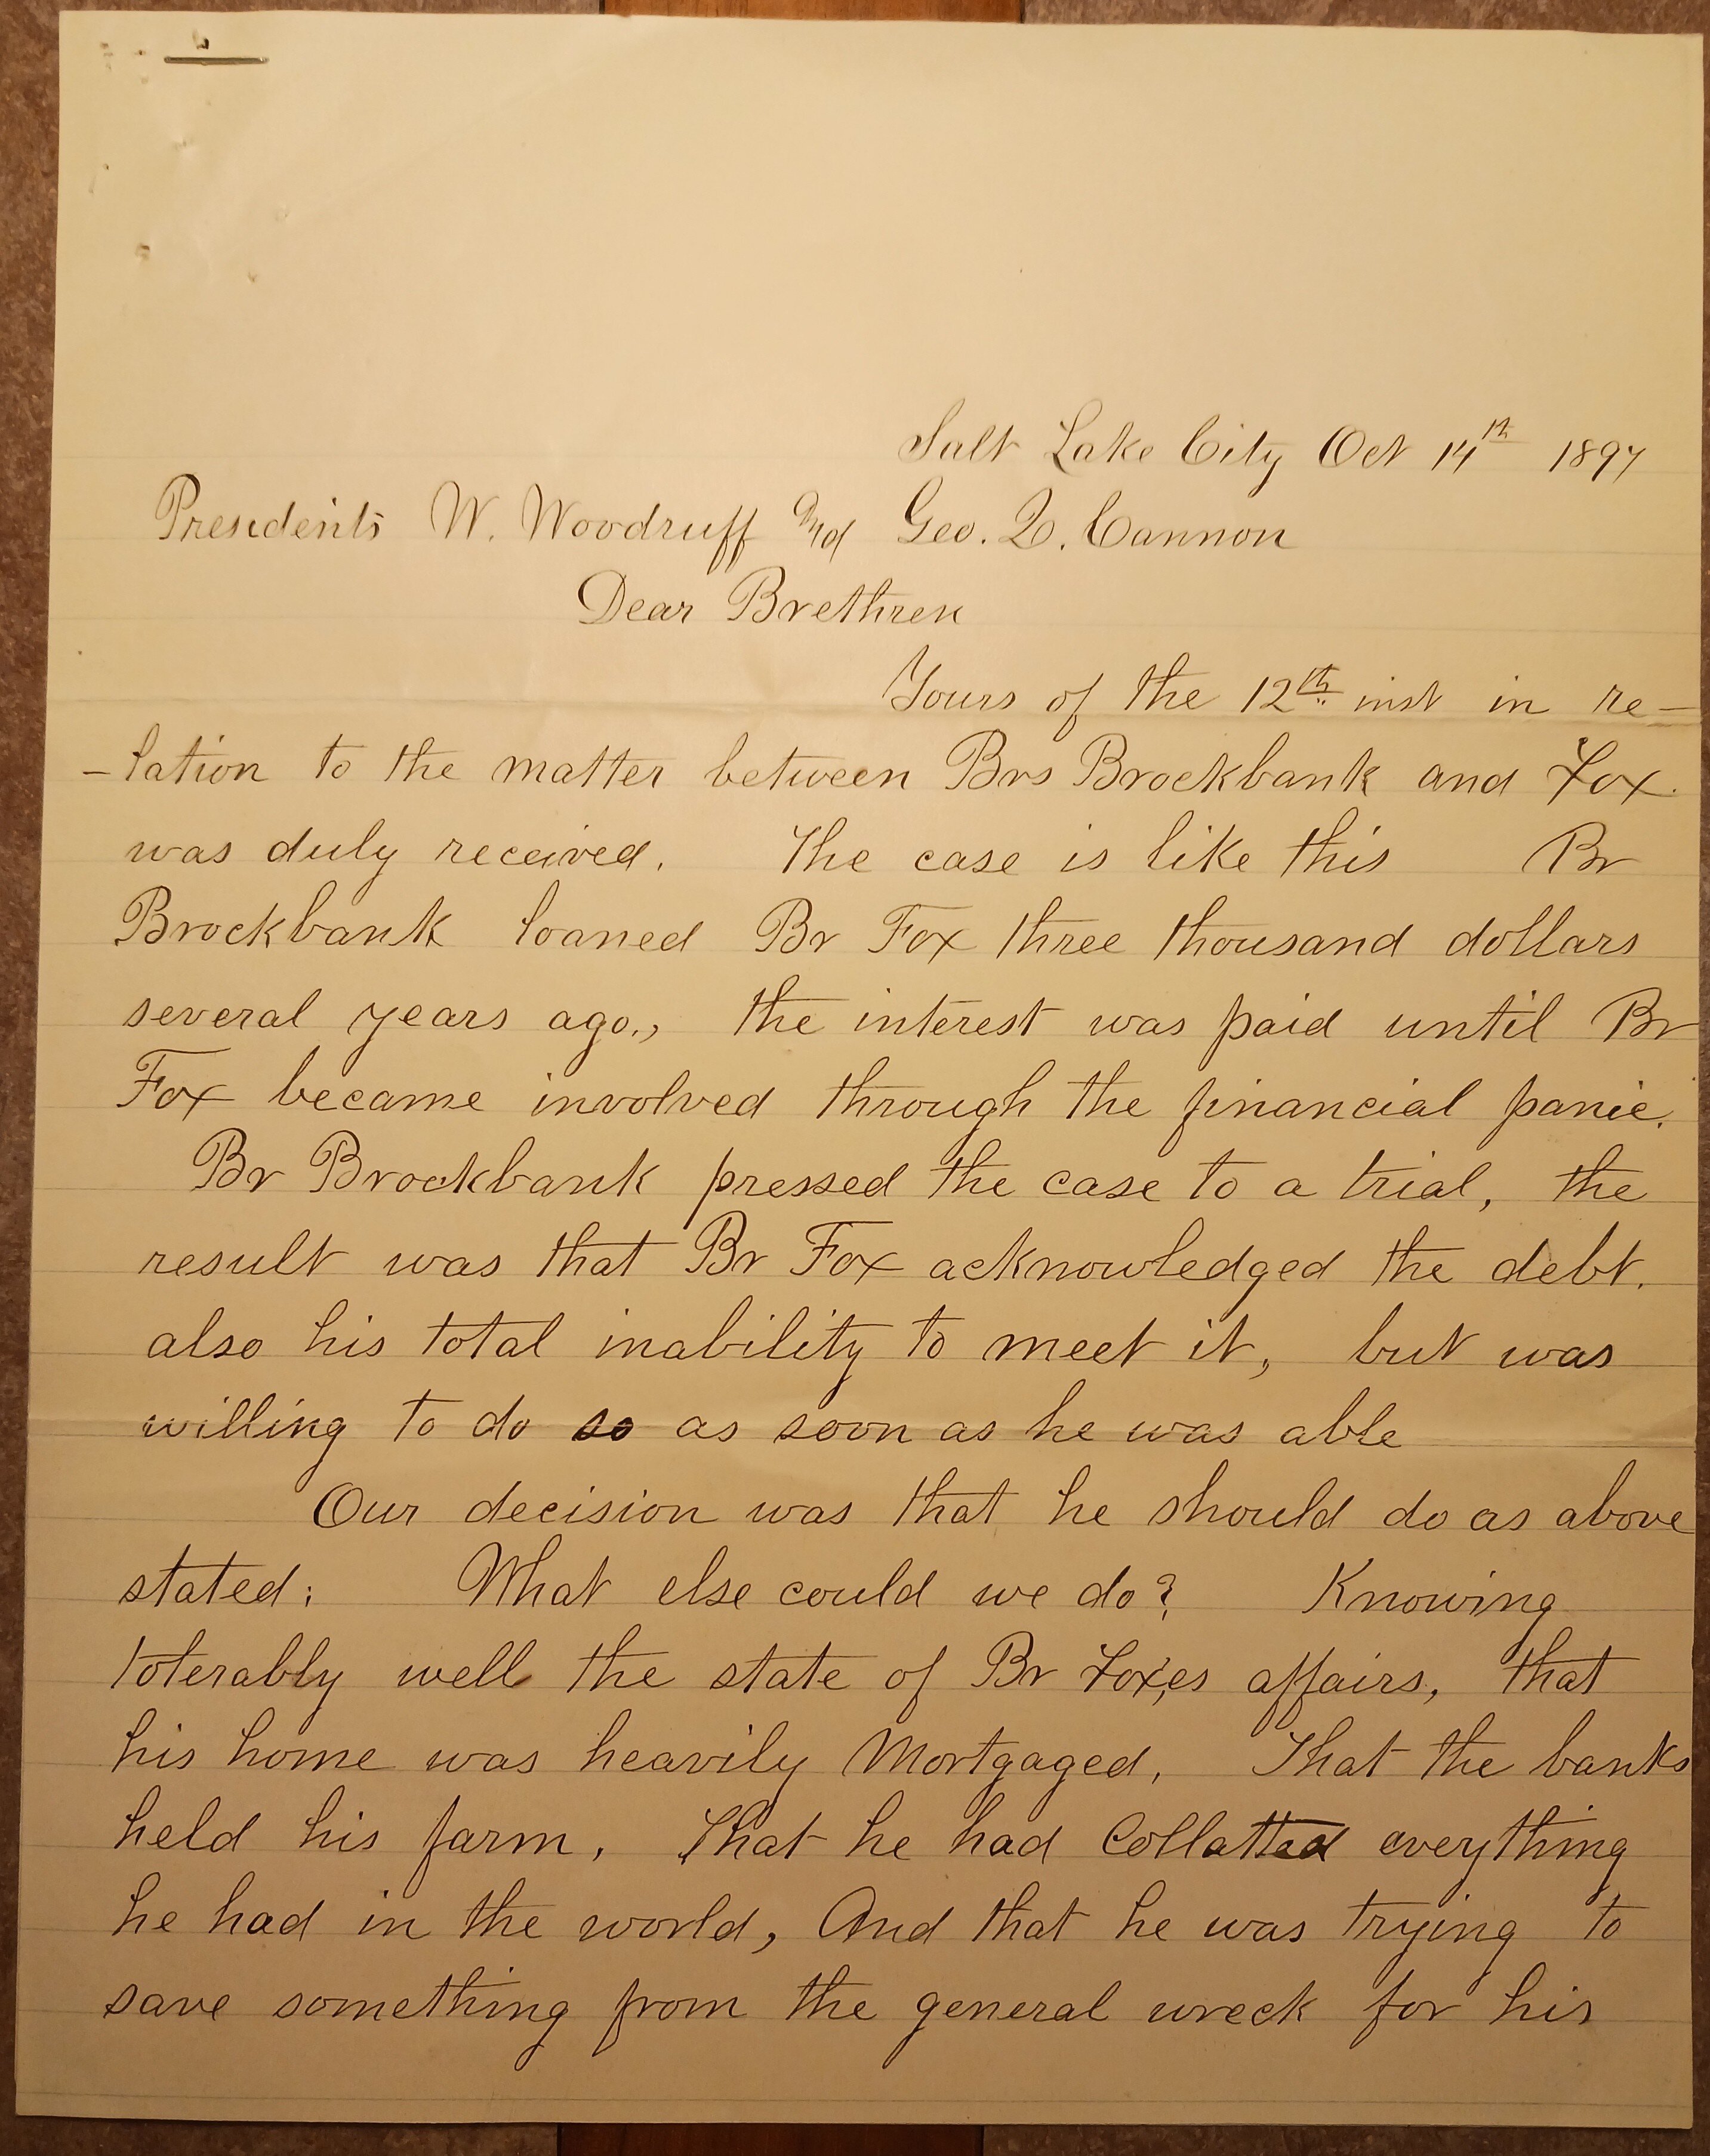 Salt Lake City Oct 14th 1897
Presidents W. Woodruff and Geo. Q. Cannon
Dear Brethren
Yours of the 12th inst in re-
-lation to the matter between Brs Brockbank and Fox.
was duly received. The case is like this Br
Brockbank loaned Br Fox three thousand dollars
several years ago., the interest was paid until Br
Fox became involved through the financial panic.
Br Brockbank pressed the case to a trial, the
result was that Br Fox acknowledged the debt.
also his total inability to meet it, but was
willing to do so as soon as he was able
Our decision was that he should do as above
stated: What else could we do? Knowing
tolerably well the state of Br Fox,es affairs, that
his home was heavily Mortgaged, That the banks
held his farm, That he had Collatted everything
he had in the world, And that he was trying to
save something from the general wreck for his